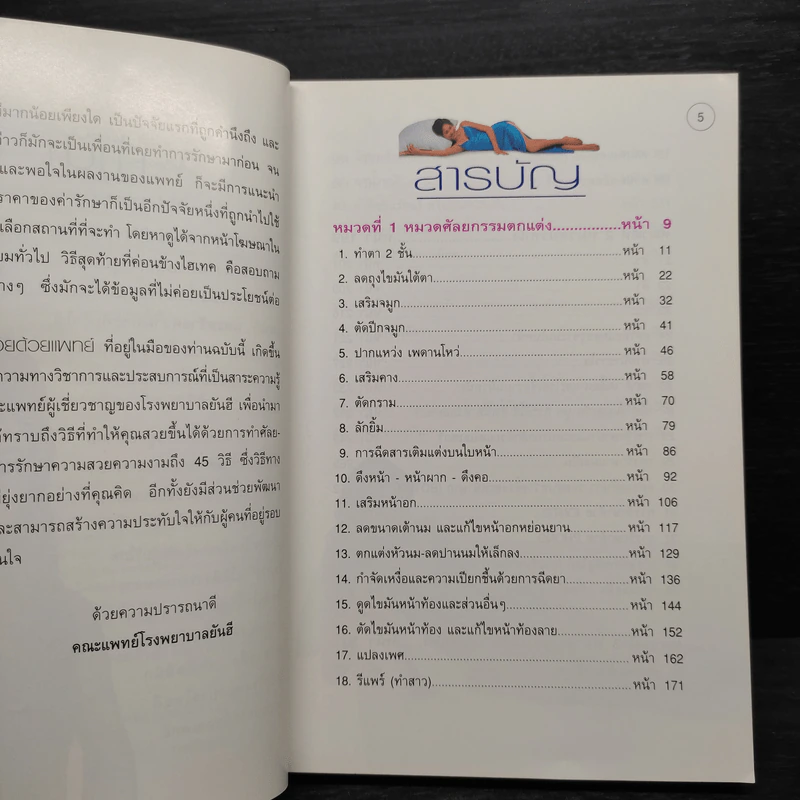 มากน้อยเพียงใด เป็นปัจจัยแรกที่ถูกคำนึงถึง และ
าวก็มักจะเป็นเพื่อนที่เคยทำการรักษามาก่อน จน
และพอใจในผลงานของแพทย์ ก็จะมีการแนะนำ
ราคาของค่ารักษาก็เป็นอีกปัจจัยหนึ่งที่ถูกนำไปใช้
เลือกสถานที่ที่จะทำ โดยหาดูได้จากหน้าโฆษณาใน
ยมทั่วไป วิธีสุดท้ายที่ค่อนข้างไฮเทค คือสอบถาม
างๆ ซึ่งมักจะได้ข้อมูลที่ไม่ค่อยเป็นประโยชน์ต่อ
วยด้วยแพทย์ ที่อยู่ในมือของท่านฉบับนี้ เกิดขึ้น
ความทางวิชาการและประสบการณ์ที่เป็นสาระความรู้
ะแพทย์ผู้เชี่ยวชาญของโรงพยาบาลยันฮี เพื่อนำมา
ทราบถึงวิธีที่ทำให้คุณสวยขึ้นได้ด้วยการทำศัลย-
ารรักษาความสวยความงามถึง 45 วิธี ซึ่งวิธีทาง
ยุ่งยากอย่างที่คุณคิด อีกทั้งยังมีส่วนช่วยพัฒนา
ละสามารถสร้างความประทับใจให้กับผู้คนที่อยู่รอบ
นใจ
ด้วยความปรารถนาดี
คณะแพทย์โรงพยาบาลยันฮี
5
สารบัญ
หมวดที่ 1 หมวดศัลยกรรมตกแต่ง................หน้า 9
1. ทำตา 2 ชั้น..................................................หน้า 11
2. ลดถุงไขมันใต้ตา..............................................หน้า 22
3. เสริมจมูก.....................................................หน้า 32
4. ตัดปีกจมูก....................................................หน้า 41
5. ปากแหว่ง เพดานโหว่........................................หน้า 46
6. เสริมคาง......................................................หน้า 58
7. ตัดกราม.......................................................หน้า 70
8. ลักยิ้ม.........................................................หน้า 79
9. การฉีดสารเติมแต่งบนใบหน้า...............................หน้า 86
10. ดึงหน้า - หน้าผาก - ดึงคอ................................หน้า 92
11. เสริมหน้าอก.................................................หน้า 106
12. ลดขนาดเต้านม และแก้ไขหน้าอกหย่อนยาน...............หน้า 117
13. ตกแต่งหัวนม-ลดปานนมให้เล็กลง..........................หน้า 129
14. กำจัดเหงื่อและความเปียกชื้นด้วยการฉีดยา...............หน้า 136
15. ดูดไขมันหน้าท้องและส่วนอื่นๆ..............................หน้า 144
16. ตัดไขมันหน้าท้อง และแก้ไขหน้าท้องลาย..................หน้า 152
17. แปลงเพศ.....................................................หน้า 162
18. รีแพร์ (ทำสาว)..............................................หน้า 171